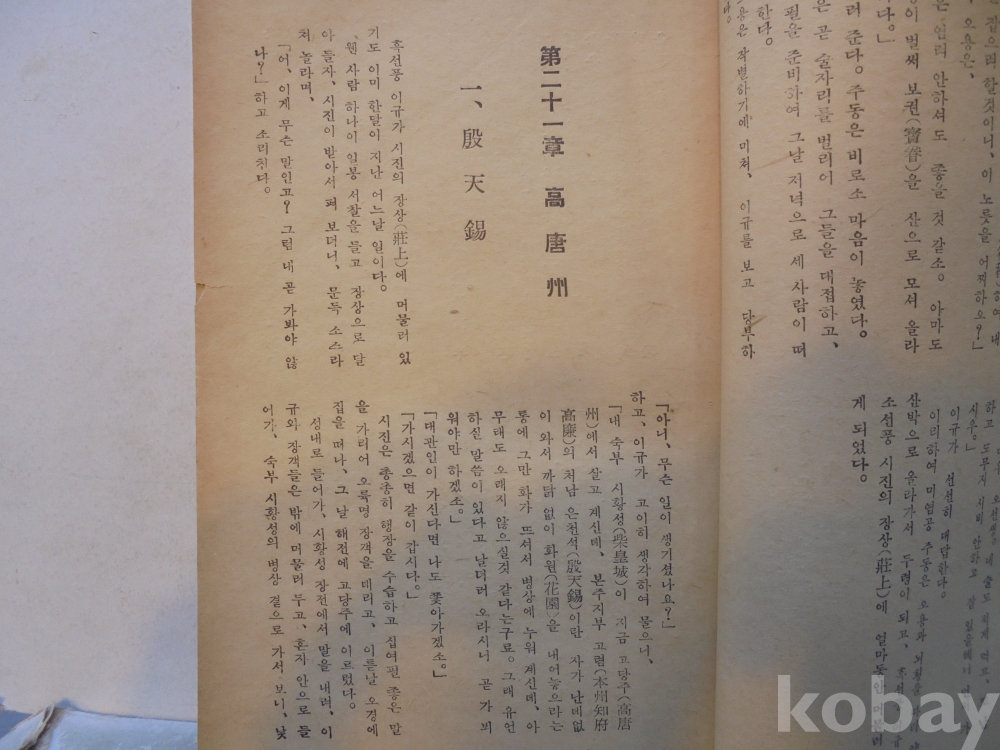 집으리 할것이니, 이 노릇을 어찌하오?」
오용은,
은 염려 안하셔도 좋을 것 같소. 아마도
이 벌써 보권(寶眷)을 산으로 모셔 올라
다。」
려 준다. 주동은 비로소 마음이 놓였다。
은 곧 술자리를 벌리어 그들을 대접하고、
필을 준비하여 그날 저녁으로 세 사람이 떠
한다。
용은 작별하기에 미쳐, 이규를 보고 당부하
시우。」
이규가 선선히 대답한다。
이리하여 미염공 주동은 오용과
산박으로 올라가서 두령이 되고,
조선풍 시진의 장상(莊上)에 얼마동안 머물러
게 되었다。
第二十一章 高唐州
一、殷天錫
흑선풍 이규가 시진의 장상(莊上)에 머물러 있
기도 이미 한달이 지난 어느날 일이다。
웬 사람 하나이 일봉 서찰을 들고 장상으로 달
아 들자, 시진이 받아서 펴 보더니、 문득 소스라
쳐 놀라며、
「어、이게 무슨 말인고? 그럼 내 곧 가봐야 않
나?」하고 소리친다。
「아니、무슨 일이 생기셨나요?」
하고、이규가 고이히 생각하여 물으니、
「내 숙부 시황성(柴皇城)이 지금 고당주(高唐
州)에서 살고 계신데、본주지부 고렴(本州知府
高廉)의 처남 은천석(殷天錫)이란 자가 난데없
이 와서 까닭 없이 화원(花園)을 내어놓으라는
통에 그만 화가 뜨셔서 병상에 누워 계신데、아
무래도 오래지 않으실것 같다는구료。그래 유언
하실 말씀이 있다고 날더러 오라시니 곧 가 뵈
워야만 하겠소。」
「대관인이 가신다면 나도 쫓아가겠소。」
「가시겠으면 같이 갑시다。」
시진은 총총히 행장을 수습하고 십여필 좋은 말
을 가리어 오륙명 장객을 데리고、이튿날 오경에
집을 떠나、그 날 해전에 고당주에 이르렀다。
성내로 들어가、시황성 장전에서 말을 내려、이
규와 장객들은 밖에 머물러 두고、혼자 안으로 들
어가、숙부 시황성의 병상 곁으로 가서 보니、낯
kobay